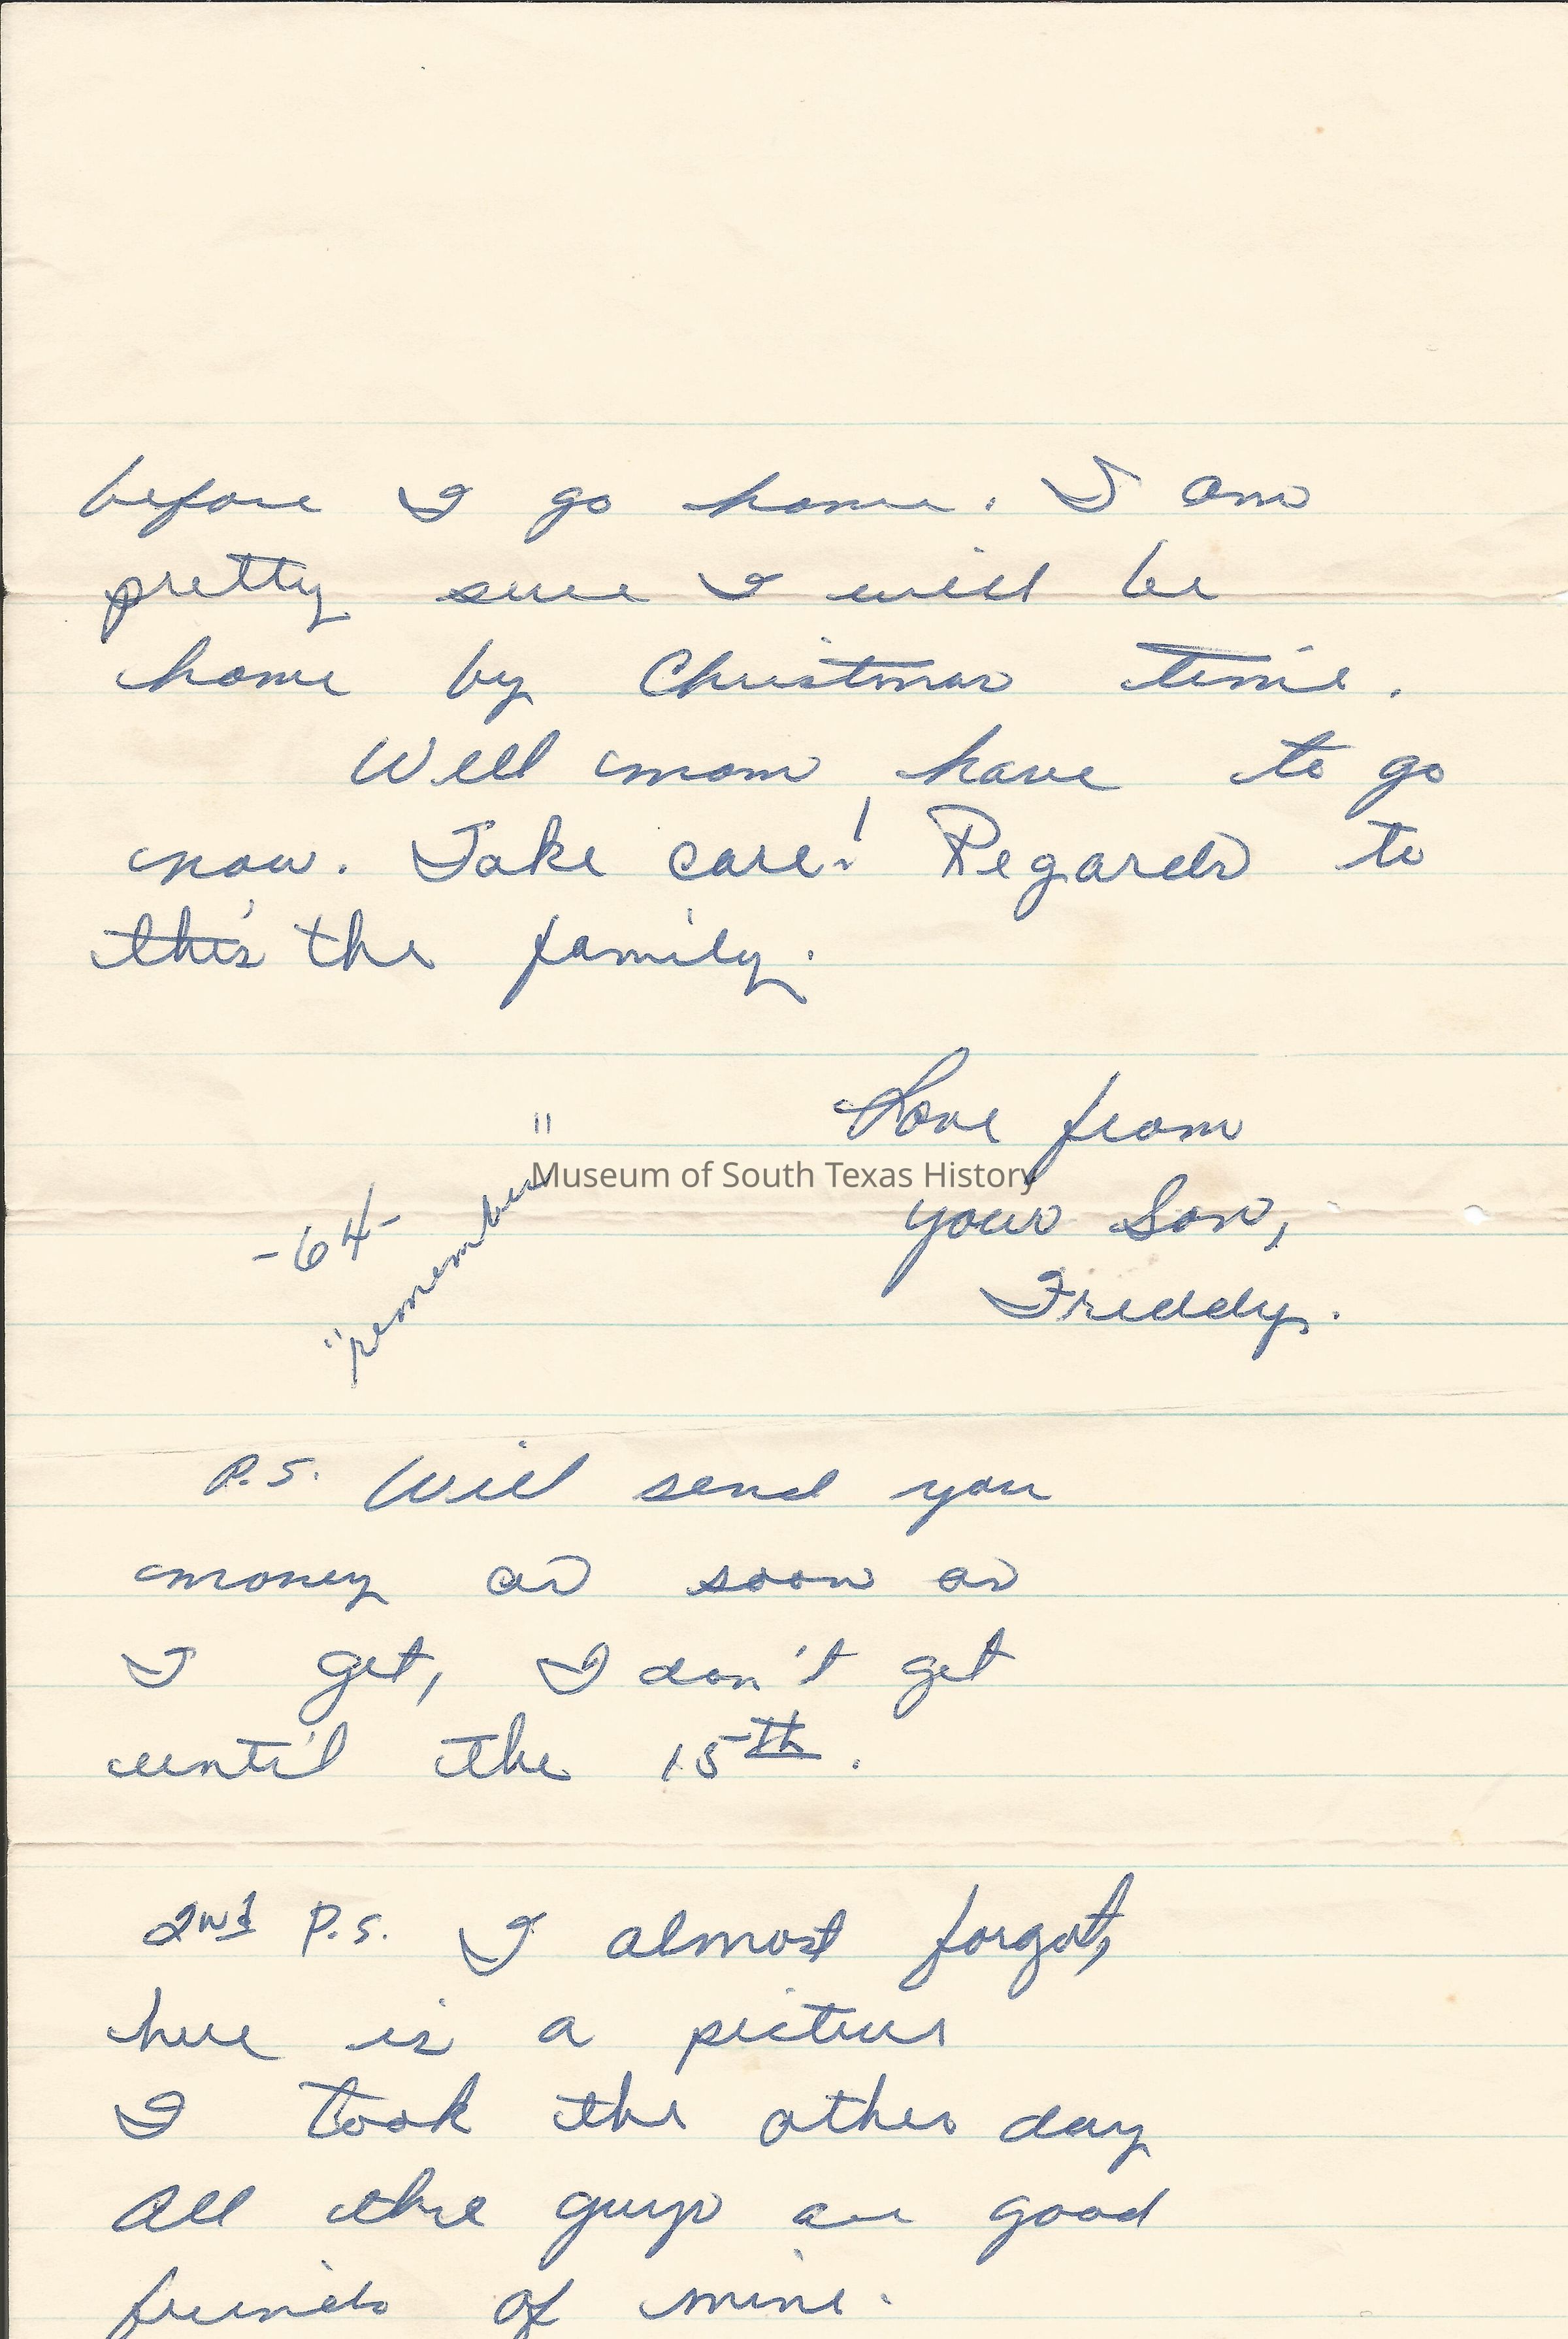 before I go home. I am
pretty sure I will be
home by Christmas time.
Well mom, have to go
now. Take care! Regards to
this the family.
Love from
your Son,
Freddy.
-64-
"remember"
Museum of South Texas History
P.S. Will send you
money as soon as
I get, I don't get
until the 15th.
2nd P.S. I almost forgot,
here is a picture
I took the other day
All thre guys are good
friends of mine.